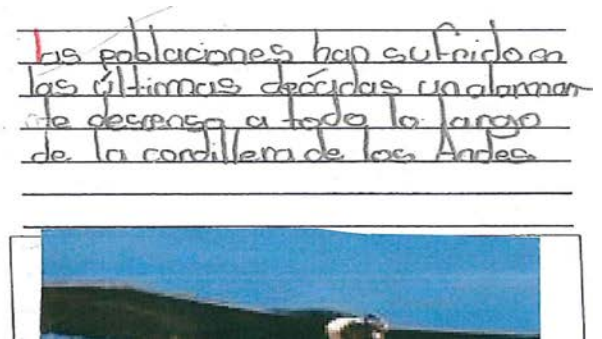 las poblaciones han sufrido en
las últimas décadas un alarman
te descenso a todo lo largo
de la cordillera de los Andes